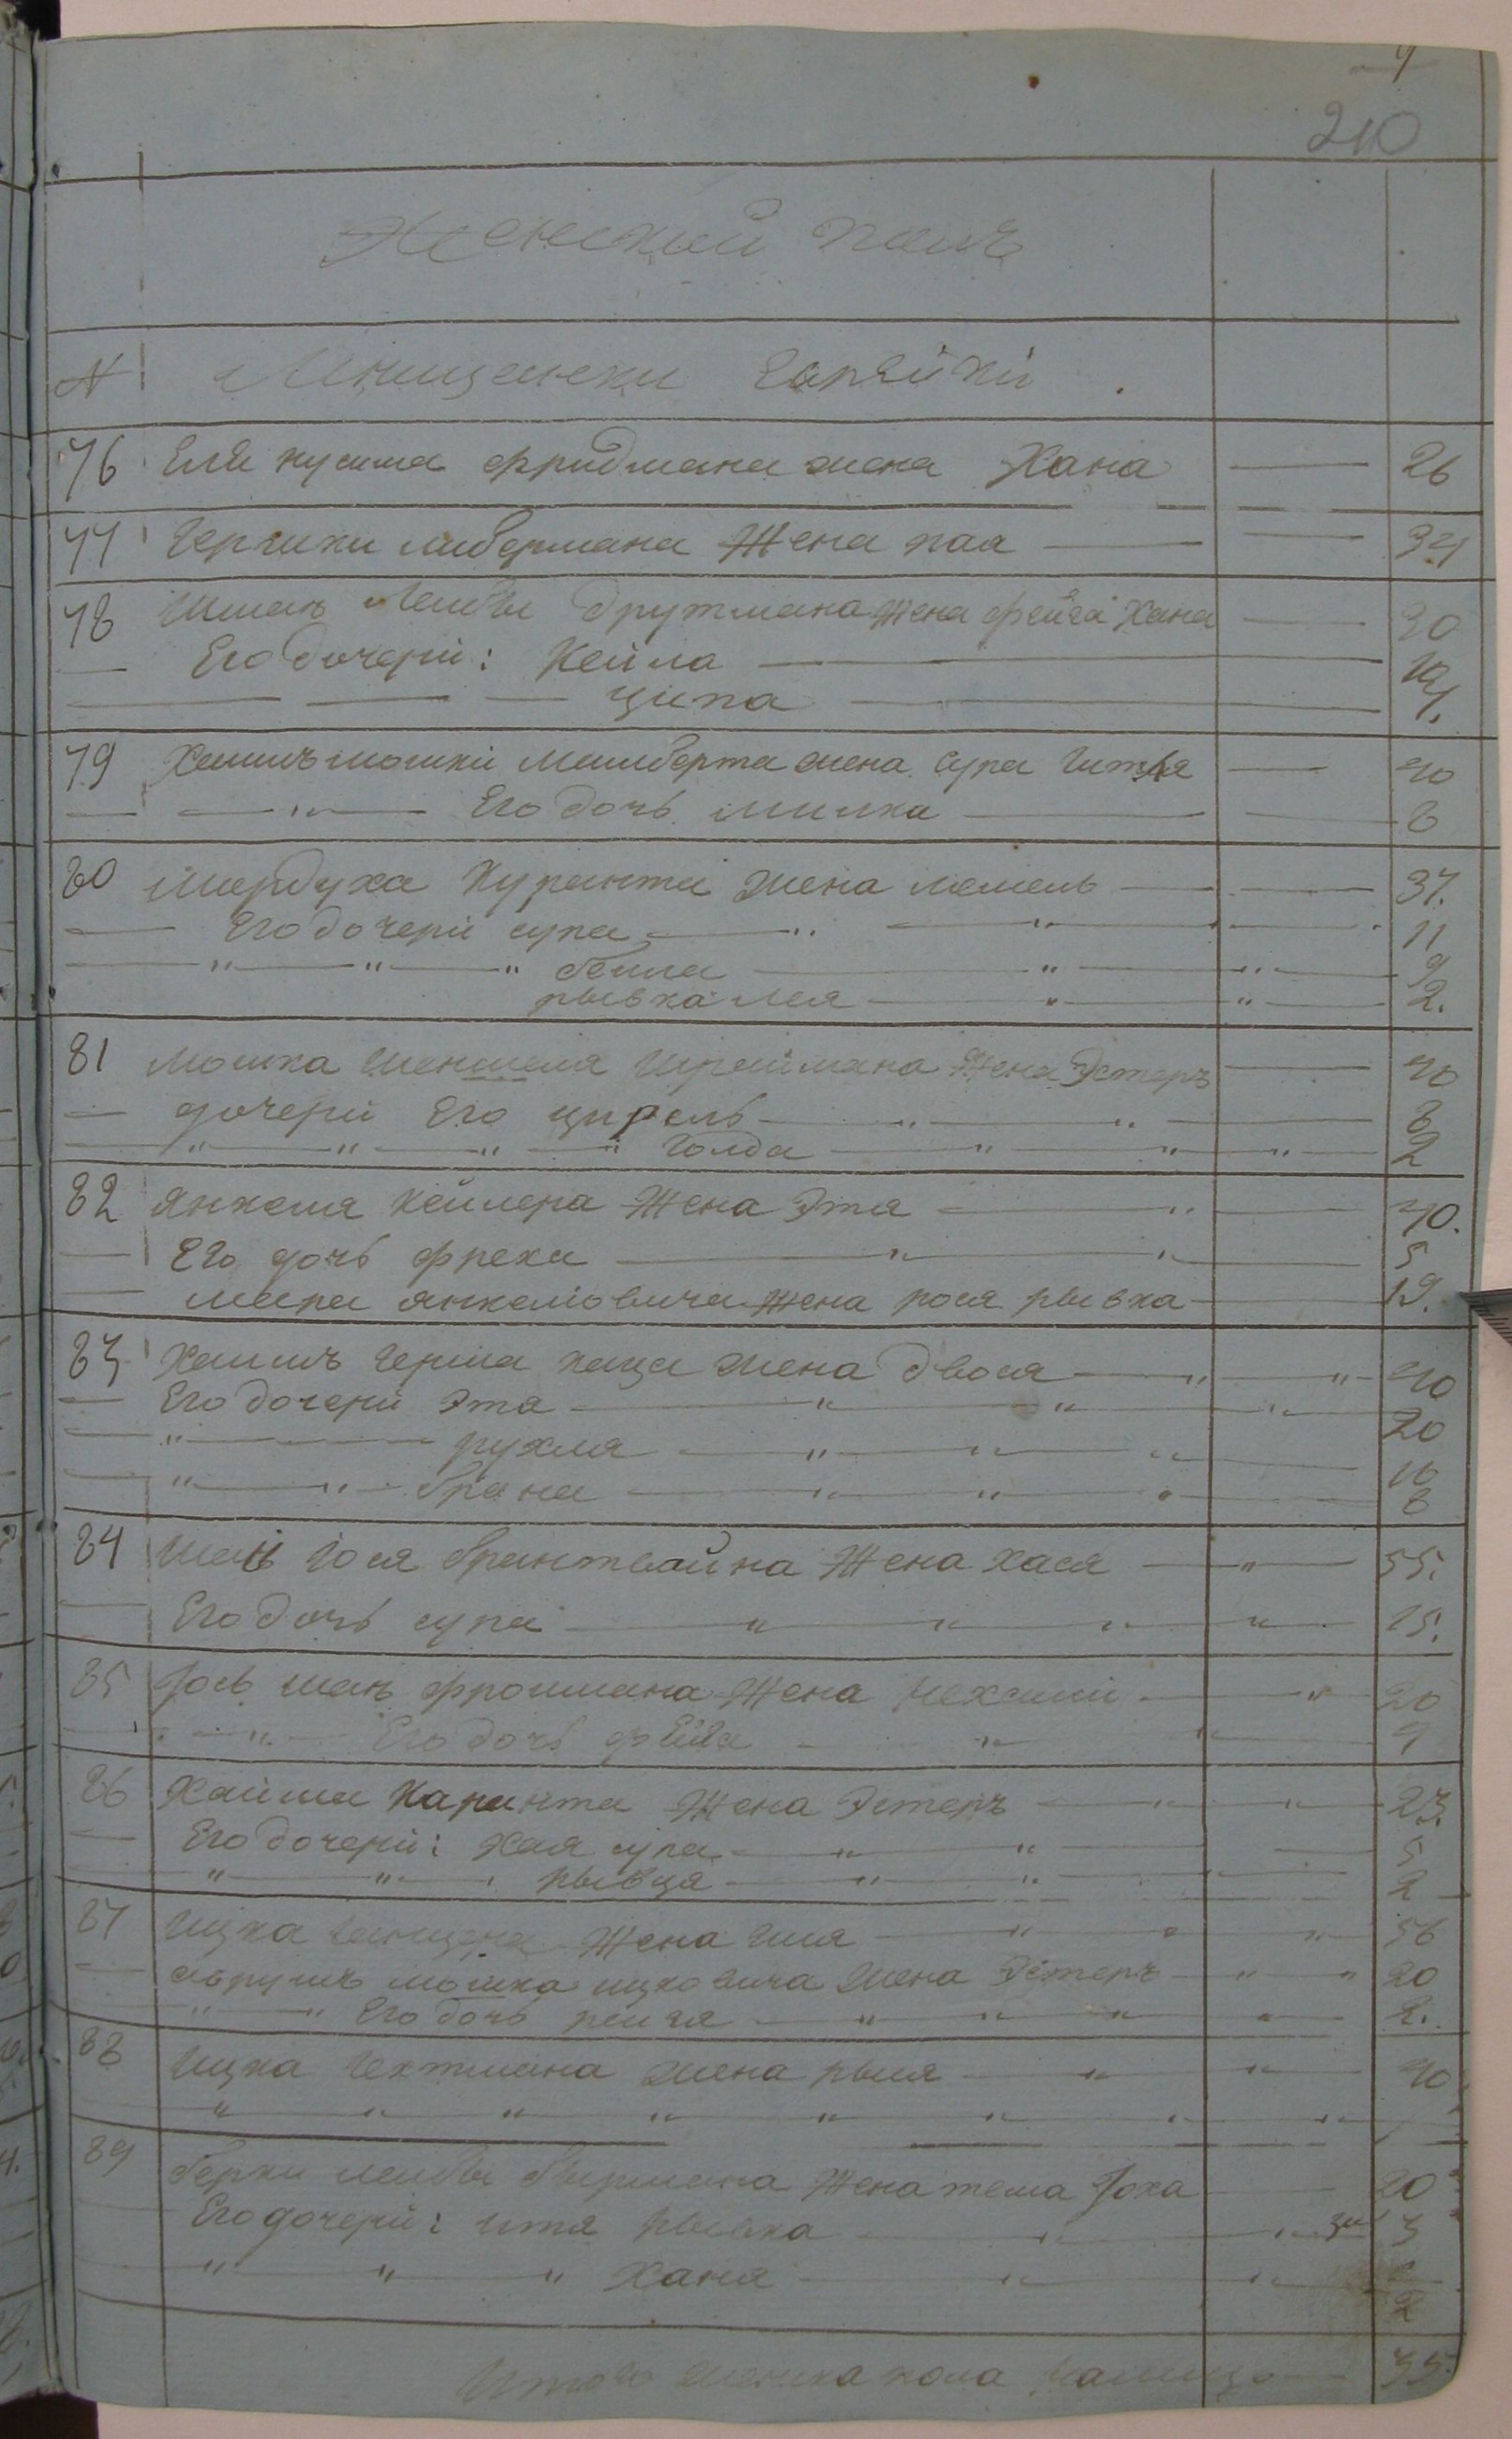 9
210
Женский полъ
N Мещански Еврейки
76 Еля нусима фридмана жена Хана 26
77 Гершки либермана Жена хая 34
78 Ицикъ Лейбы Друтмана Жена фейга Хана 30
Его дочери: Кейла 10
ципа 7.
79 Хаимъ мошки мамберта жена сура Гитля 40
Его дочь милка 8
80 Мордуха Куранта жена 37.
Его дочери сура 11
бейла 9
рывка лея 2.
81 Мошка Шраймана Жена Эстеръ 40
дочери Его цирель 8
Голда 2
82 Янкеля Кейлера Жена Этя 40.
Его дочь фрека 5
янкеліовича Жена рося рывка 19.
83 Хаимъ Герша каца жена двося 40
Его дочери Этя 20
рухля 10
брана 8
84 Шая Гося брантвайна Жена хася 55.
Его дочь сура 15.
85 Іось фроимана Жена Нехами 20
Его дочь фейга
86 Хайма Каранта Жена Эстеръ 23.
Его дочери: Хая сура 5
рывця 2
87 Ицка Жена 56
мошка ицковича жена Эстеръ 20
Его дочь рейзя 2.
88 Ицка Гехтмана жена рыля 40
89 берки лейбы бырмана Жена тема Іоха 20
Его дочери: итя рывка 3
Ханя
2
Итого женска пола 35.